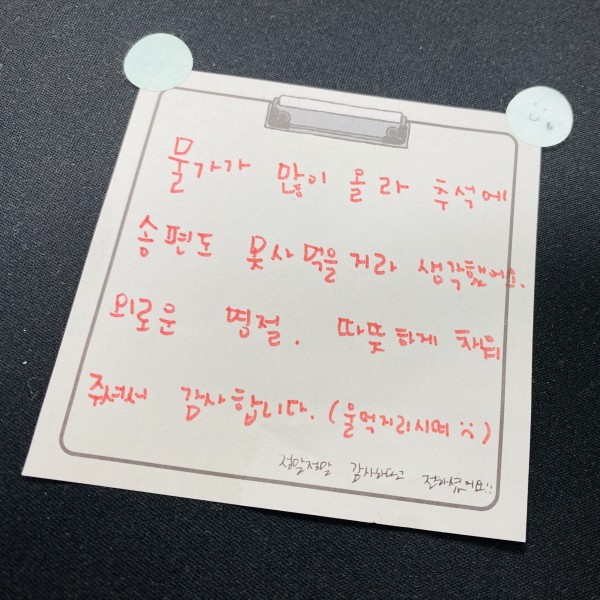 물가가 많이 올라 추석에
송편도 못사먹을거라 생각했어요.
외로운 명절. 따뜻하게 채워
주셔서 감사합니다. (울먹거리시며 ㅠ)
정말정말 감사하다고 전하셨어요!!